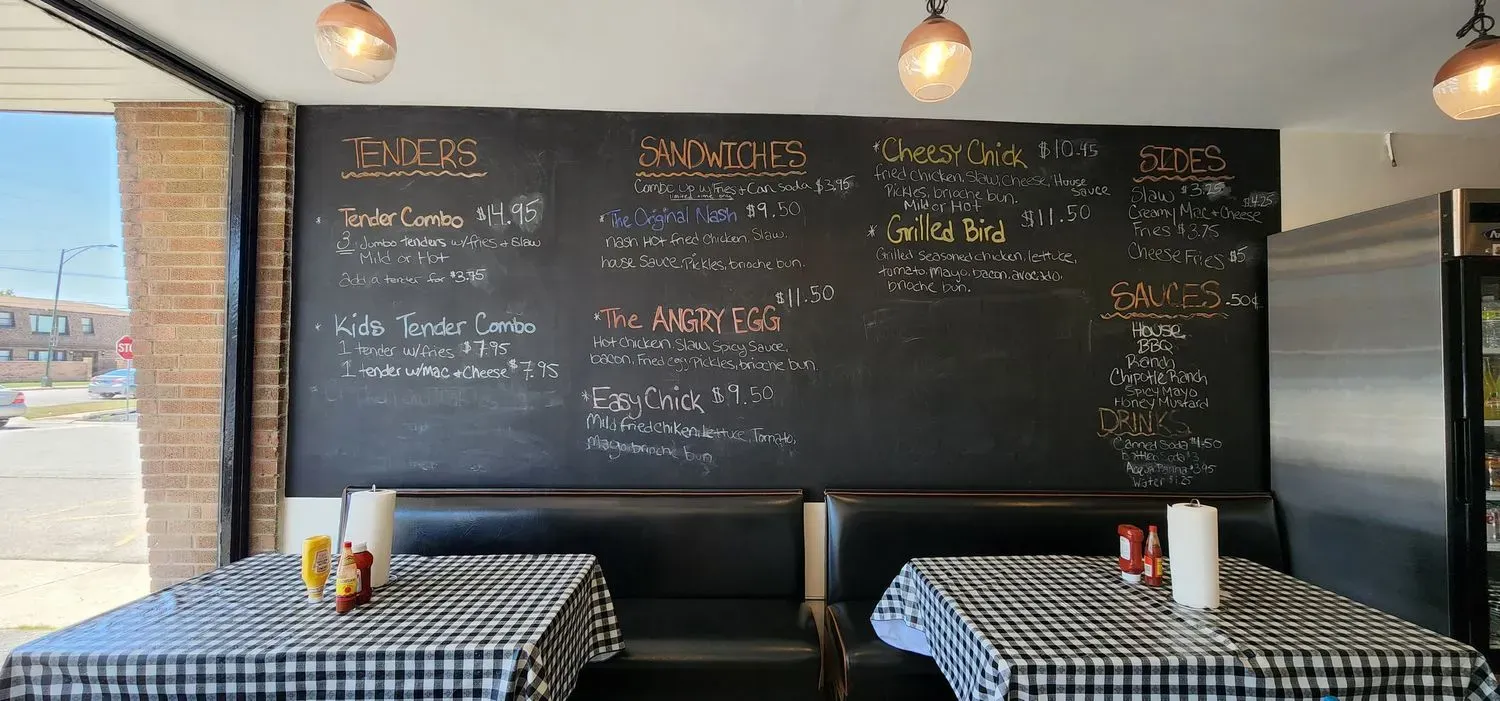 TENDERS
* Tender Combo $14.95
3 Jumbo tenders w/fries + Slaw
Mild or Hot
add a tender for $3.75
* Kids Tender Combo
1 tender w/fries $7.95
1 tender w/Mac + Cheese $7.95
SANDWICHES
Combo up w/Fries + Can soda $3.95
limited time only
* The Original Nash $9.50
nash Hot fried chicken, Slaw,
house sauce, Pickles, brioche bun.
$11.50
* The ANGRY EGG
Hot chicken, Slaw, Spicy Sauce,
bacon, Fried egg, Pickles, brioche bun.
* Easy Chick $9.50
Mild fried chiken, lettuce, Tomato,
Mayo brioche bun.
* Cheesy Chick $10.45
fried chicken, Slaw, Cheese, House
sauce
Pickles, brioche bun.
Mild or Hot
* Grilled Bird $11.50
Grilled seasoned chicken, lettuce,
tomato, mayo, bacon, avocado,
brioche bun.
SIDES
Slaw $3.25
$4.25
Creamy Mac + Cheese
Fries $3.75
Cheese Fries $5
SAUCES .50¢
House
BBQ
Ranch
Chipotle Ranch
Spicy Mayo
Honey Mustard
DRINKS
Canned Soda $1.50
Bottled Soda $3
Acqua Panna $3.95
Water $1.25